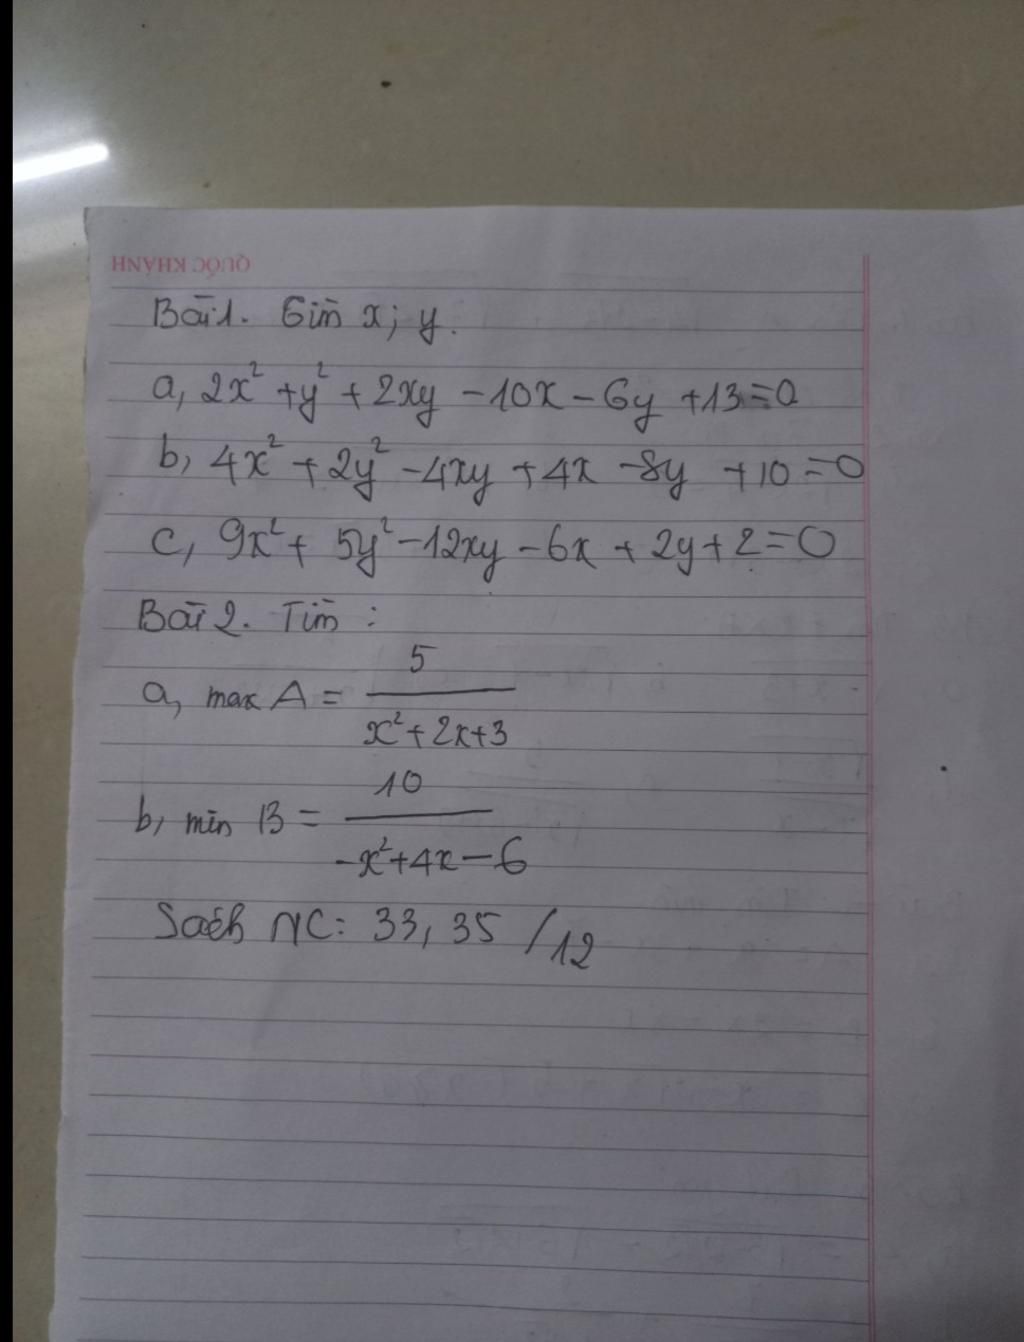 QUỐC KHÁNH
Bài 1. Tìm x; y.
a, 2x² + y² + 2xy - 10x - 6y + 13 = 0
b, 4x² + 2y² - 4xy + 4x - 8y + 10 = 0
c, 9x² + 5y² - 12xy - 6x + 2y + 2 = 0
Bài 2. Tìm :
a, max A = 5 / (x² + 2x + 3)
b, min B = 10 / (-x² + 4x - 6)
Sách NC: 33, 35 / 12